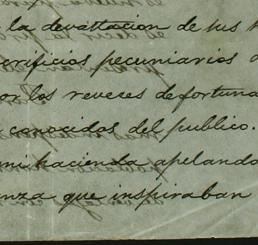 la devastacion de sus
crificios pecuniarios
or los reveses de fortuna
conocidos del publico.
mi hacienda apelando
anza que inspiraban